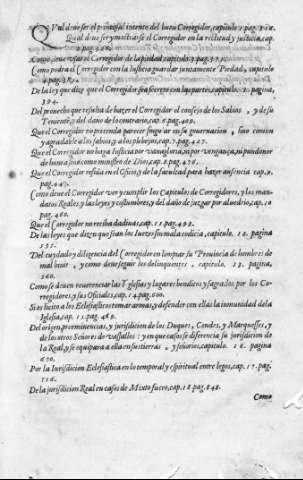 Qual deue ser el principal intento del buen Corregidor, capitulo
Qual deue ser y mostrarse el Corregidor en la rectitud y justicia, cap.
Como, con vsar el Corregidor de la piedad, capitulo 3. pag.
Como podra el Corregidor con la Iusticia guardar juntamente Piedad, capitulo
4. pag.
De la ley que dize que el Corregidor sea secreto con las partes, capitulo
394.
Del prouecho que resulta de hazer el Corregidor el consejo de los Sabios, y de su
Teniente, y del daño de lo contrario, cap. 6. pag. 409.
Que el Corregidor no pretenda parecer singular en su gouernacion, sino comun
y agradable a los sabios, y a los plebeyos, cap. 7. pag. 427.
Que el Corregidor no haga Iusticia por vanagloria, ni por vengança, ni por
de humano, sino como ministro de Dios, cap. 8. pag. 436.
Que el Corregidor resida en el Oficio, y de la facultad para hazer ausencia cap. 9.
pag. 447.
Como deue el Corregidor ver y cumplir los Capitulos de Corregidores, y los mandatos
Reales, y las leyes y costumbres, y del daño de juzgar por aluedrio, cap. 10
pag. 460.
Que el Corregidor no reciba dadiuas, cap. 11. pag. 492.
De las leyes que dizen que sean los Iuezes sin mala codicia, capitulo. 12. pagina
531.
Del cuydado y diligencia del Corregidor en limpiar su Prouincia de hombres de
mal biuir, y como deue seguir los delinquentes, capitulo. 13. pagina,
560.
Como se deuen reuerenciar las Yglesias y lugares benditos y sagrados por los Corregidores
y sus Oficiales, cap. 14. pag. 600.
Si es licito a los Eclesiasticos tomar armas, y defender con ellas la inmunidad de la
Iglesia, cap. 15. pag.
Del origen, preeminencias, y jurisdicion de los Duques, Condes, y Marqueses, y
de los otros Señores de vassallos: y en que casos se diferencia su jurisdicion de
la Real, y se equipara a ella en sus tierras, y señorios, capitulo. 16. pagina
670.
Por la Iurisdicion Eclesiastica en lo temporal y espiritual entre legos, cap. 17. pag.
De la jurisdicion Real en casos de Mixto fuero, cap. 18. pag. 848.
Como